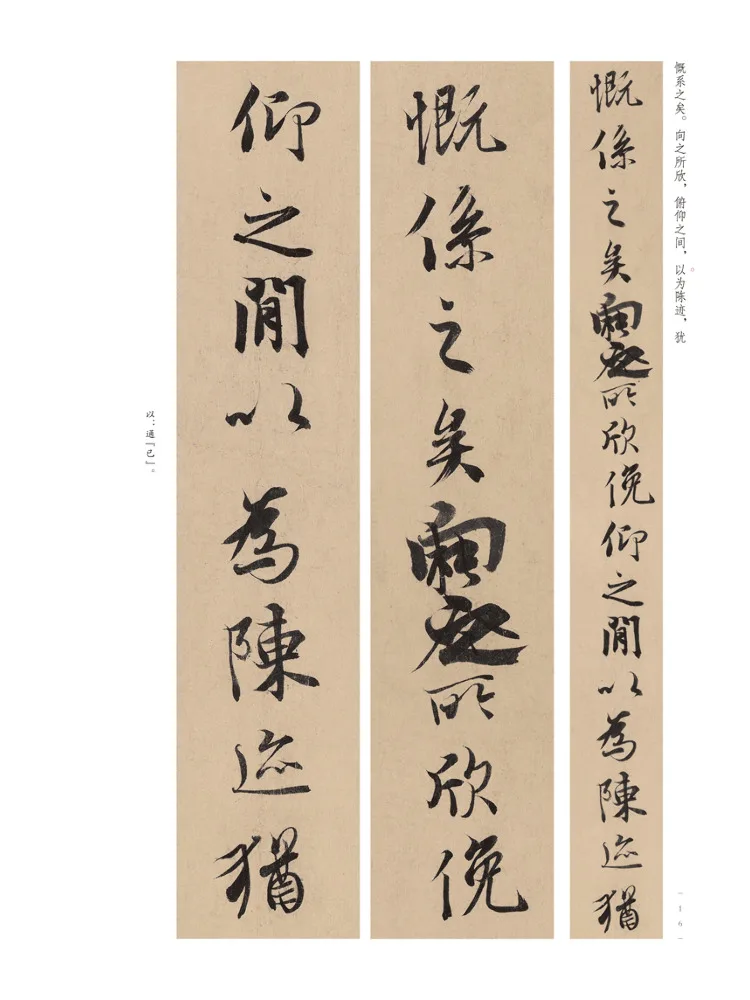 慨系之矣。向之所欣，俯仰之间，以为陈迹，犹
16
慨係之矣向之所欣俛仰之閒以為陳迹猶
慨係之矣向之所欣俛
仰之閒以為陳迹猶
以：通『已』。